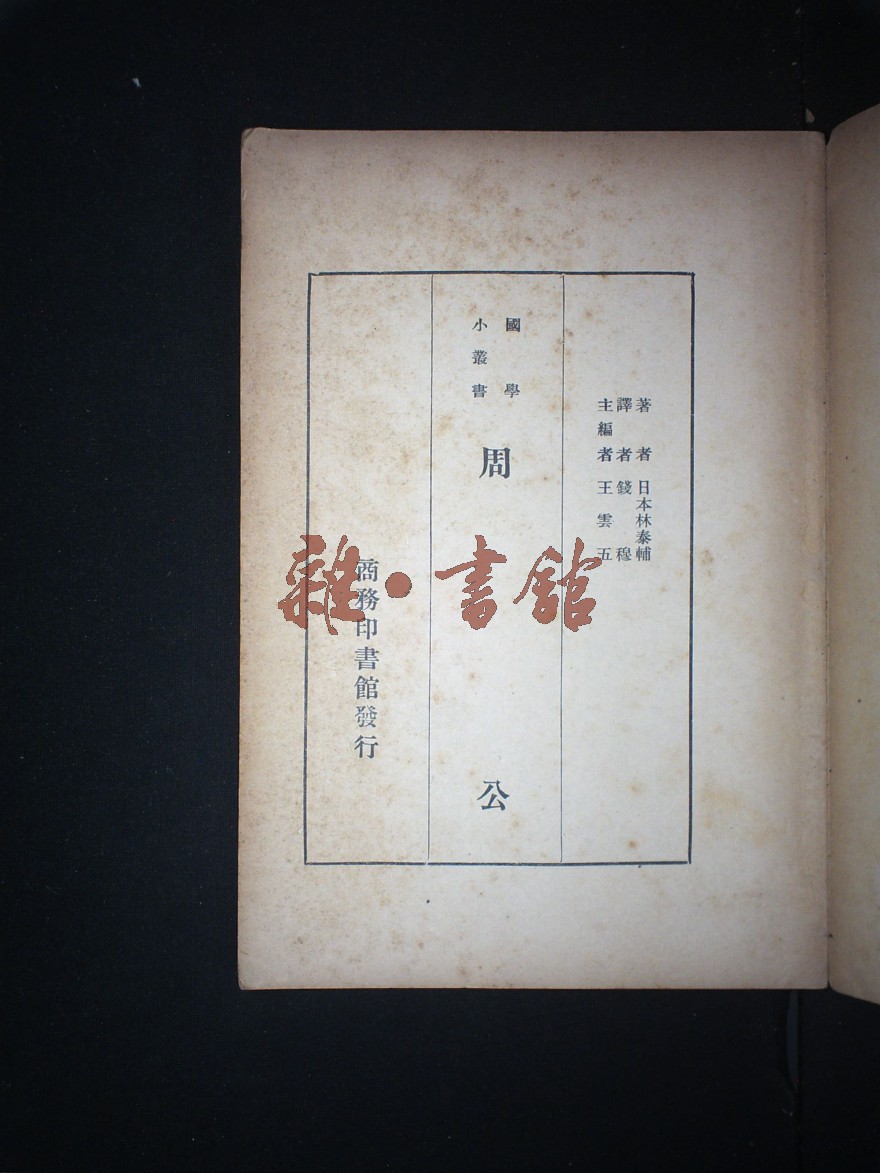 著者 日本林泰輔
譯者 錢穆
主編者 王雲五
國學
小叢書
周公
商務印書館發行
雜·書館